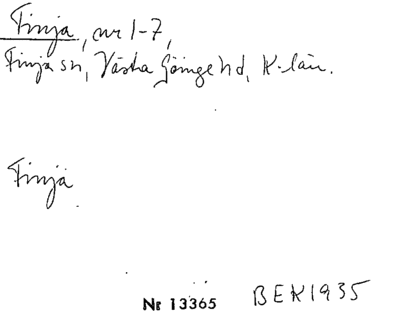 Finja, nr 1-7,
Finja sn, Västra Göinge hd, K-län.
Finja
Nr 13365 BEK1935